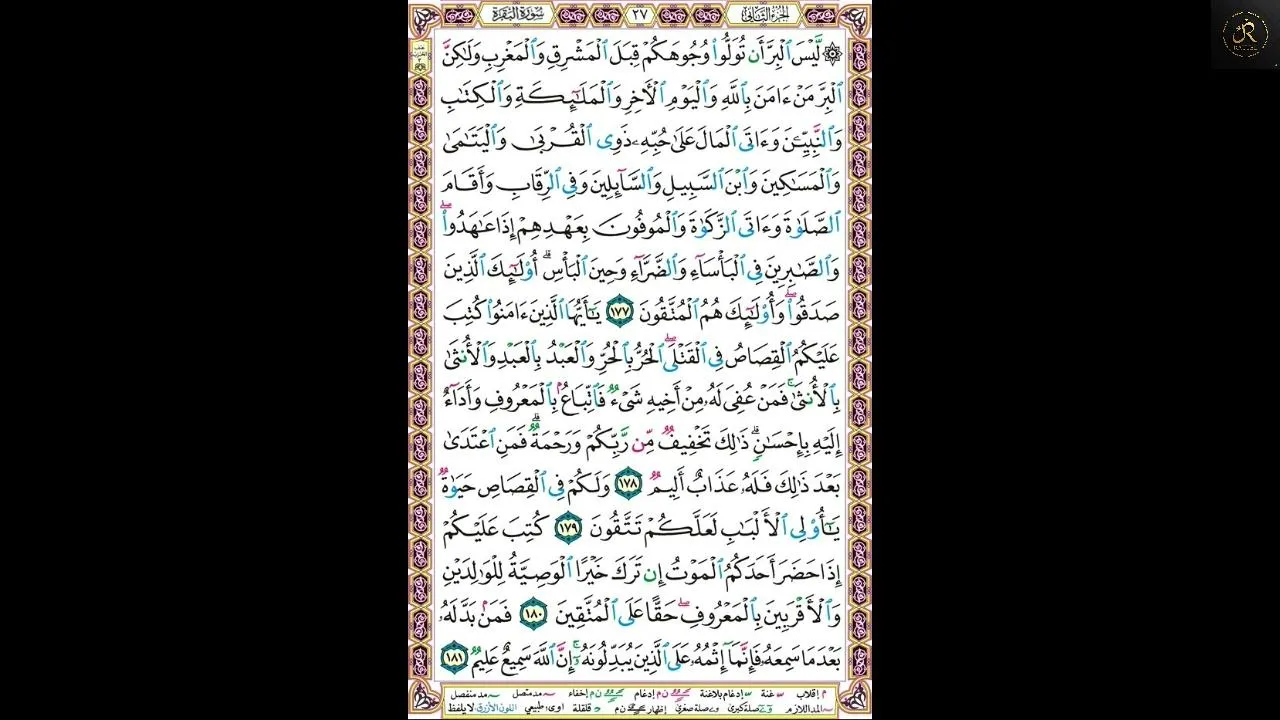 الجزء الثاني
٢٧
سورة البقرة
۞ لَّيۡسَ ٱلۡبِرَّ أَن تُوَلُّواْ وُجُوهَكُمۡ قِبَلَ ٱلۡمَشۡرِقِ وَٱلۡمَغۡرِبِ وَلَٰكِنَّ
ٱلۡبِرَّ مَنۡ ءَامَنَ بِٱللَّهِ وَٱلۡيَوۡمِ ٱلۡأٓخِرِ وَٱلۡمَلَٰٓئِكَةِ وَٱلۡكِتَٰبِ
وَٱلنَّبِيِّـۧنَ وَءَاتَى ٱلۡمَالَ عَلَىٰ حُبِّهِۦ ذَوِي ٱلۡقُرۡبَىٰ وَٱلۡيَتَٰمَىٰ
وَٱلۡمَسَٰكِينَ وَٱبۡنَ ٱلسَّبِيلِ وَٱلسَّآئِلِينَ وَفِي ٱلرِّقَابِ وَأَقَامَ
ٱلصَّلَوٰةَ وَءَاتَى ٱلزَّكَوٰةَ وَٱلۡمُوفُونَ بِعَهۡدِهِمۡ إِذَا عَٰهَدُواْۖ
وَٱلصَّٰبِرِينَ فِي ٱلۡبَأۡسَآءِ وَٱلضَّرَّآءِ وَحِينَ ٱلۡبَأۡسِۗ أُوْلَٰٓئِكَ ٱلَّذِينَ
صَدَقُواْۖ وَأُوْلَٰٓئِكَ هُمُ ٱلۡمُتَّقُونَ ١٧٧ يَٰٓأَيُّهَا ٱلَّذِينَ ءَامَنُواْ كُتِبَ
عَلَيۡكُمُ ٱلۡقِصَاصُ فِي ٱلۡقَتۡلَىۖ ٱلۡحُرُّ بِٱلۡحُرِّ وَٱلۡعَبۡدُ بِٱلۡعَبۡدِ وَٱلۡأُنثَىٰ
بِٱلۡأُنثَىٰۚ فَمَنۡ عُفِيَ لَهُۥ مِنۡ أَخِيهِ شَيۡءٞ فَٱتِّبَاعُۢ بِٱلۡمَعۡرُوفِ وَأَدَآءٌ
إِلَيۡهِ بِإِحۡسَٰنٖۗ ذَٰلِكَ تَخۡفِيفٞ مِّن رَّبِّكُمۡ وَرَحۡمَةٞۗ فَمَنِ ٱعۡتَدَىٰ
بَعۡدَ ذَٰلِكَ فَلَهُۥ عَذَابٌ أَلِيمٞ ١٧٨ وَلَكُمۡ فِي ٱلۡقِصَاصِ حَيَوٰةٞ
يَٰٓأُوْلِي ٱلۡأَلۡبَٰبِ لَعَلَّكُمۡ تَتَّقُونَ ١٧٩ كُتِبَ عَلَيۡكُمۡ
إِذَا حَضَرَ أَحَدَكُمُ ٱلۡمَوۡتُ إِن تَرَكَ خَيۡرًا ٱلۡوَصِيَّةُ لِلۡوَٰلِدَيۡنِ
وَٱلۡأَقۡرَبِينَ بِٱلۡمَعۡرُوفِۖ حَقًّا عَلَى ٱلۡمُتَّقِينَ ١٨٠ فَمَنۢ بَدَّلَهُۥ
بَعۡدَ مَا سَمِعَهُۥ فَإِنَّمَآ إِثۡمُهُۥ عَلَى ٱلَّذِينَ يُبَدِّلُونَهُۥٓۚ إِنَّ ٱللَّهَ سَمِيعٌ عَلِيمٞ ١٨١
إقلاب غنة إدغام بلاغنة ن م إدغام ن م إخفاء مد متصل مد منفصل
المد اللازم صلة كبرى صلة صغرى إظهار ن م قلقلة اوى طبيعي اللون الأزرق لا يلفظ